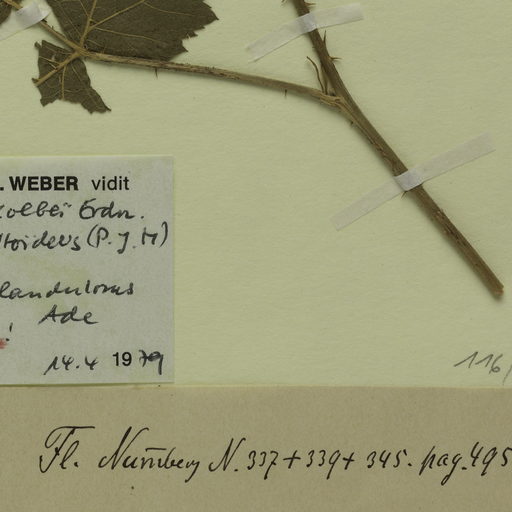 . WEBER vidit
Erdn.
(P. J. M)
landulosus
Ade
!
14.4 1979
116/
Fl. Nürnberg N. 337+339+345. pag. 495